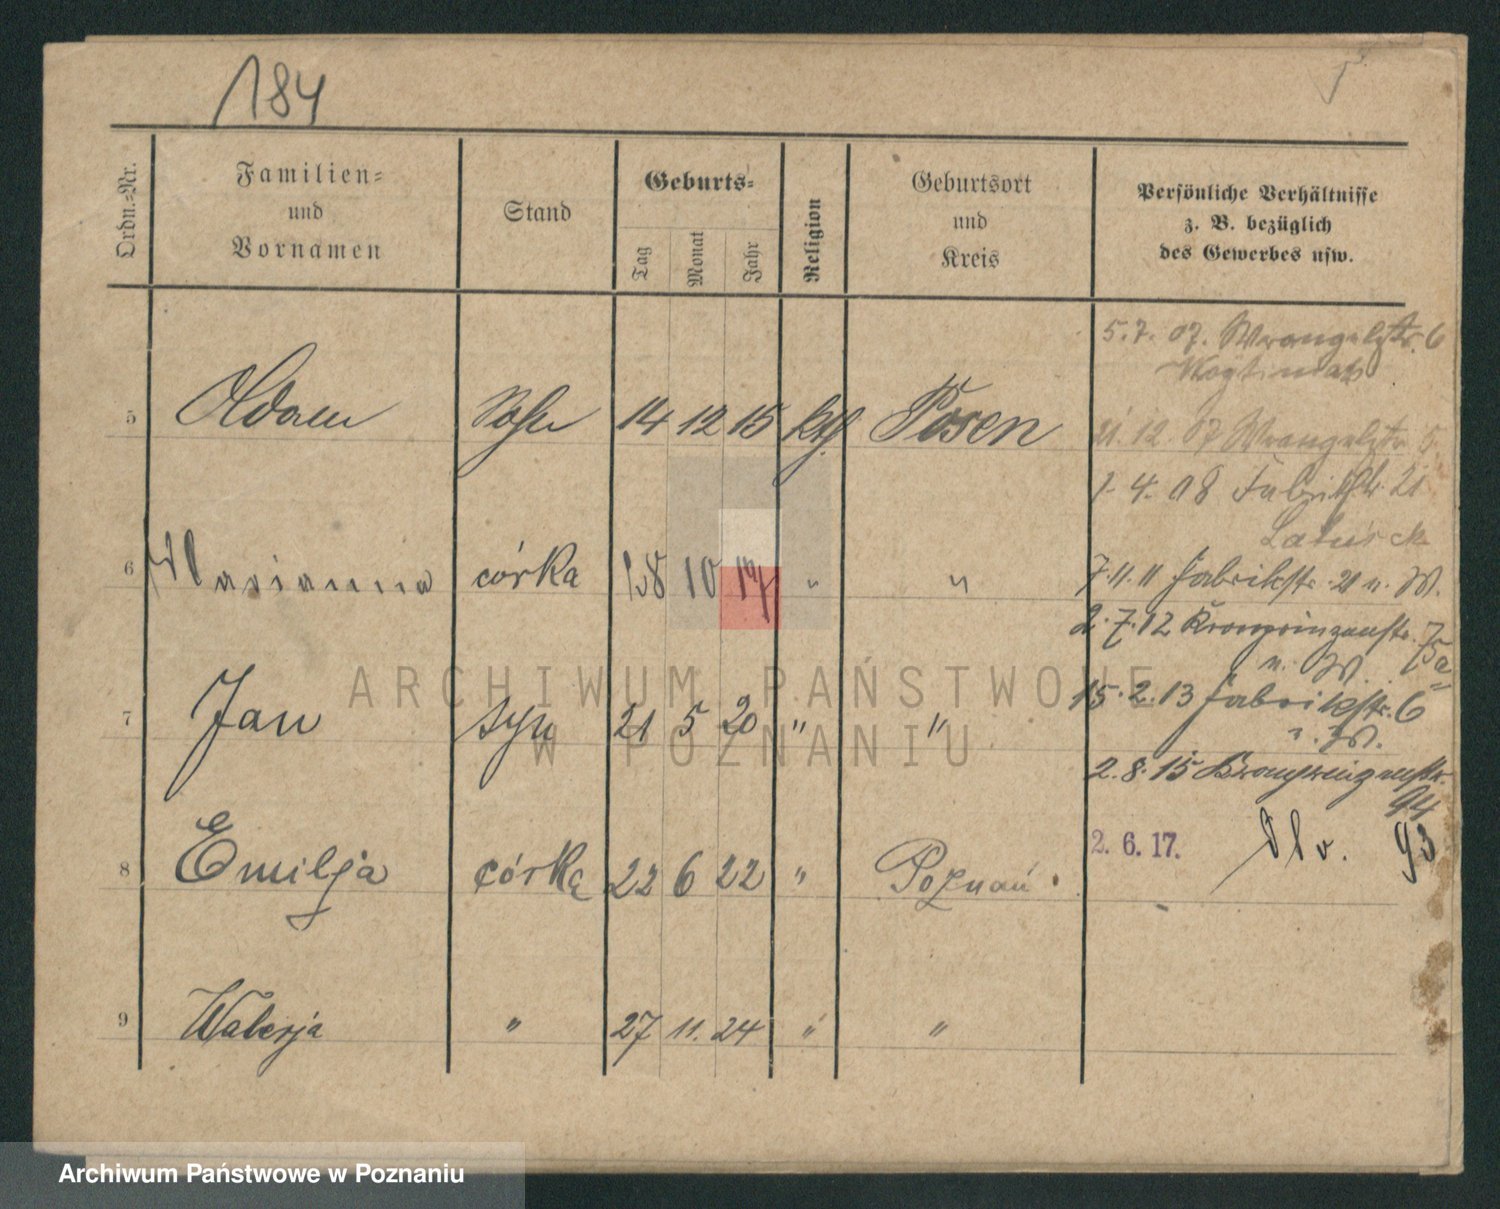 184
Ordn.-Nr.
Familien-
und
Vornamen
Stand
Geburts-
Tag
Monat
Jahr
Religion
Geburtsort
und
Kreis
Persönliche Verhältnisse
z. B. bezüglich
des Gewerbes usw.
5.7. 07. Wrangelstr. 6
5 Adam Sohn 14 12 15 kth Posen
21. 12. 07 Wrangelstr. 5
1. 4. 08 Fabrikstr. 21
6 Marianna córka 18 10 17 " "
7. 11. 11 Fabrikstr. 21 n. W.
2. 7. 12 Kronprinzenstr. 75a
n. W.
7 Jan syn 21 5 20 " "
15. 2. 13 Fabrikstr. 6
n. W.
2. 8. 15 Kronprinzenstr.
94
8 Emilja córka 22 6 22 " Poznań
2. 6. 17. 93
9 Walerja " 27 11. 24 " "
ARCHIWUM PAŃSTWOWE
W POZNANIU
Archiwum Państwowe w Poznaniu